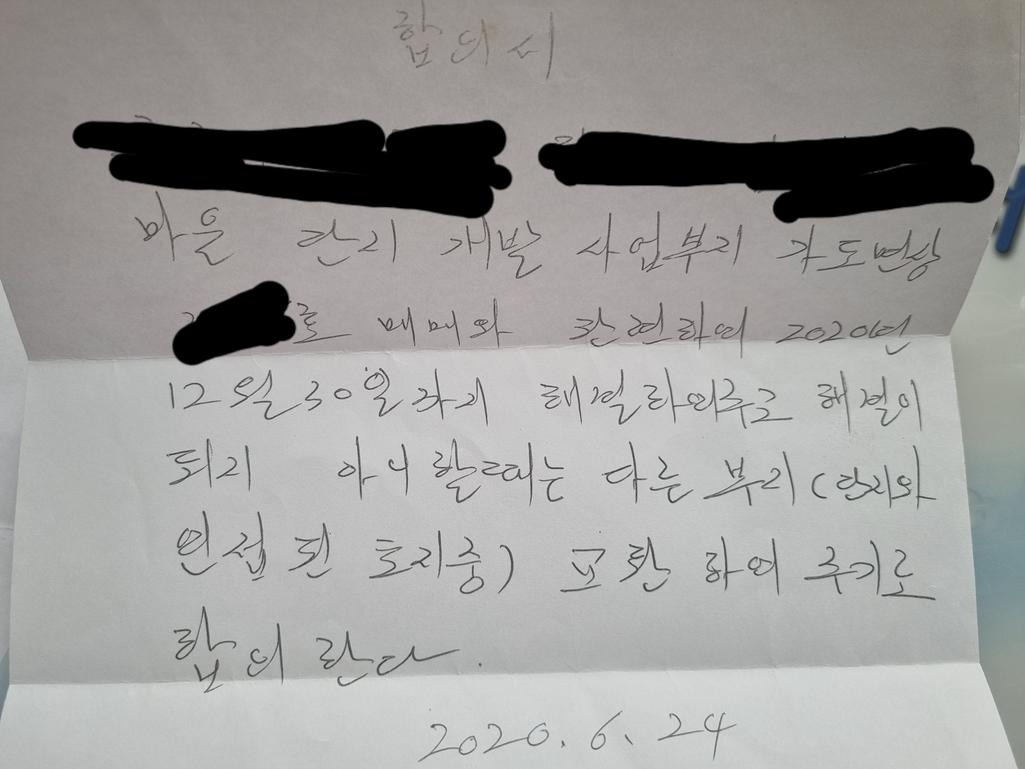 합의서
마을 단지 개발 사업부지 가도면상
도 매매와 관련하여 2020년
12월 30일까지 해결하여주고 해결이
되지 아니할때는 다른 부지 (단지와
인접된 토지중) 교환 하여 주기로
합의 한다.
2020. 6. 24